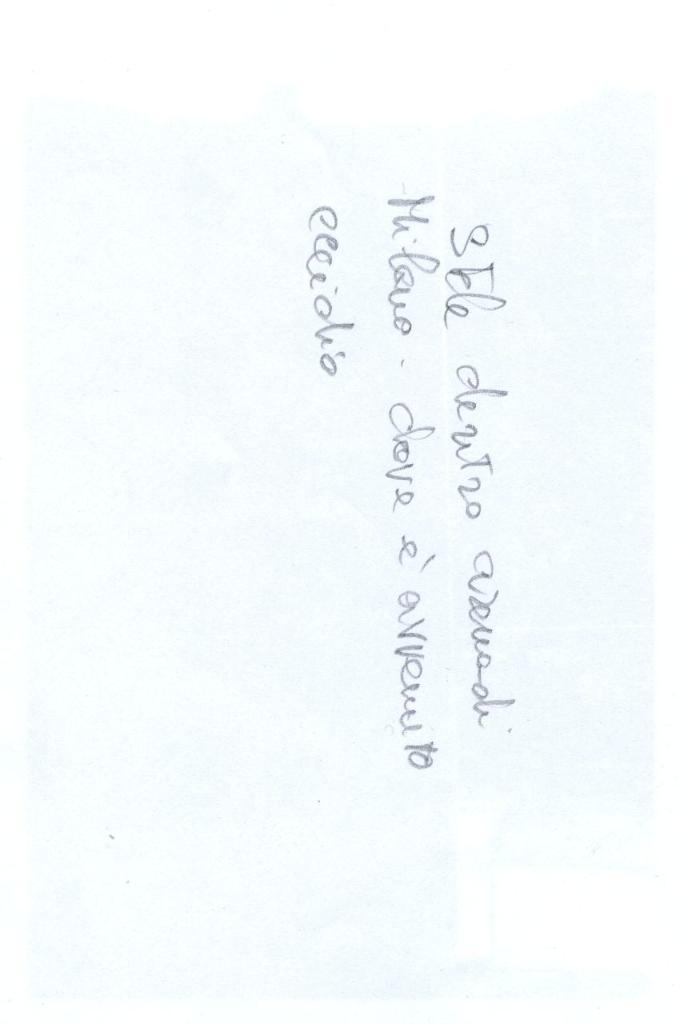 Stele dentro arena di
Milano - dove è avvenuto
eccidio